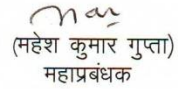 (महेश कुमार गुप्ता)
महाप्रबंधक